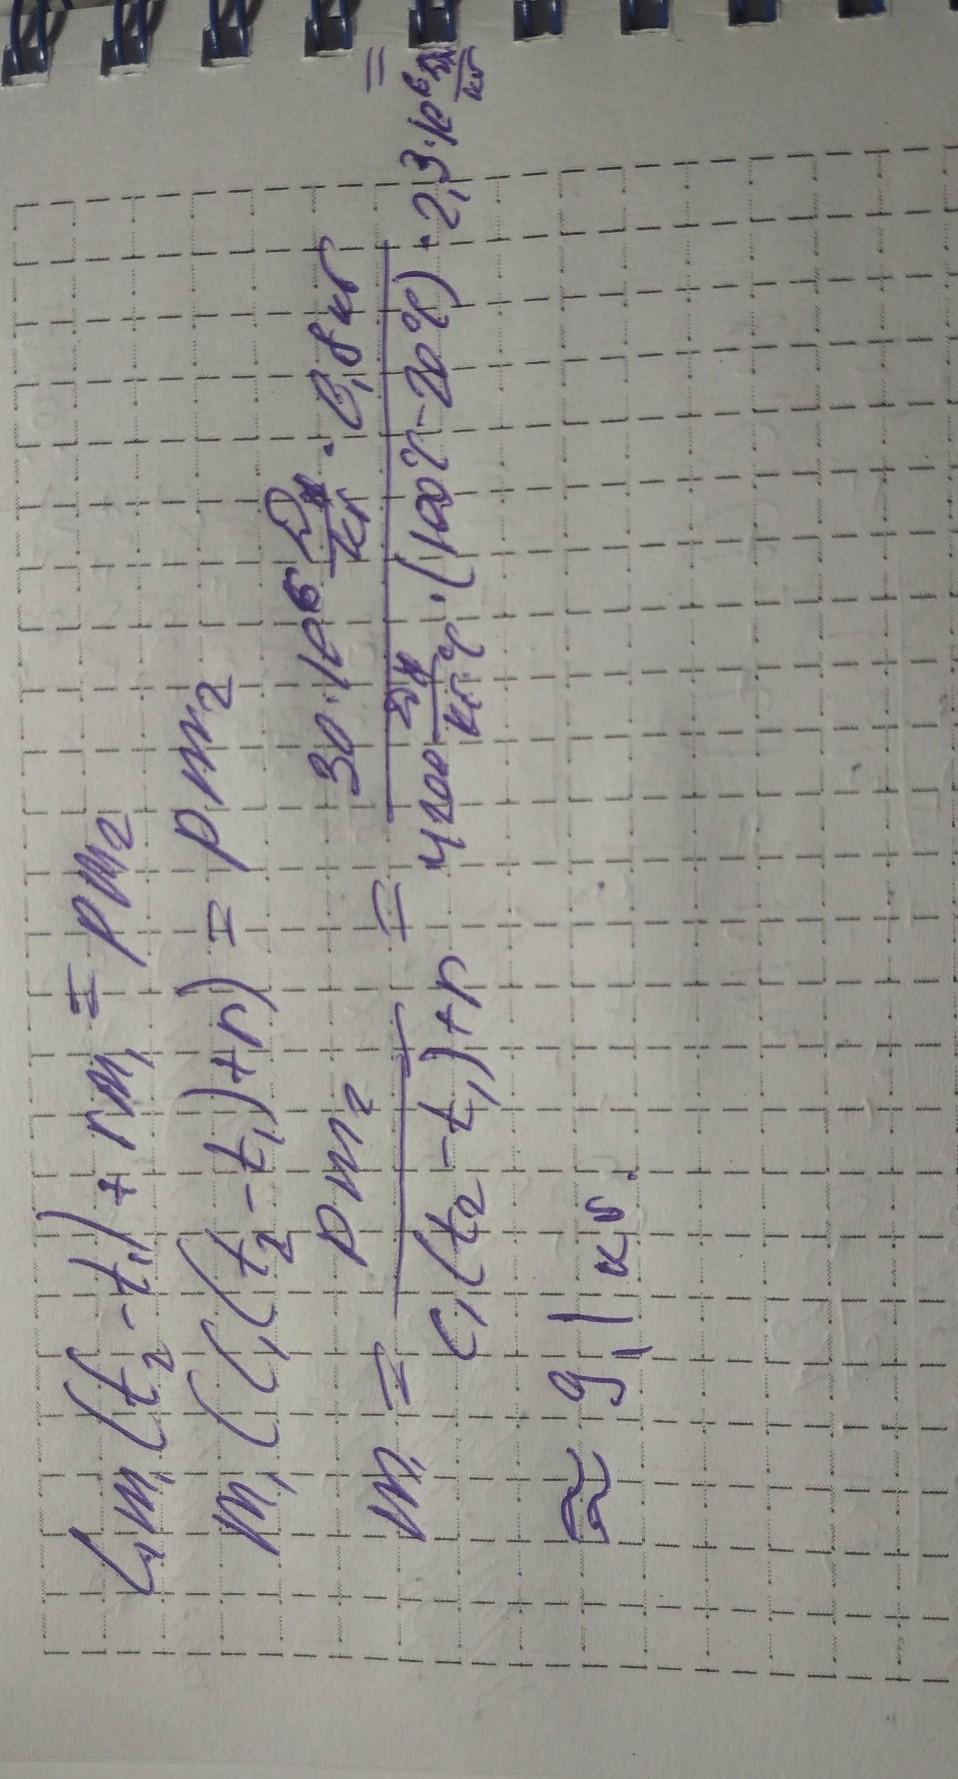 C₁m₁(t₂-t₁)+rm₁=pm₂
m₁(C₁(t₂-t₁)+r)=pm₂
m₁ = pm₂ / C₁(t₂-t₁)+r = 30·10⁶ Дж/кг · 0,8кг / 4200 Дж/кг°С · (100°С-20°С) · 2,3·10⁶ Дж/кг =
≈ 9,1 кг.